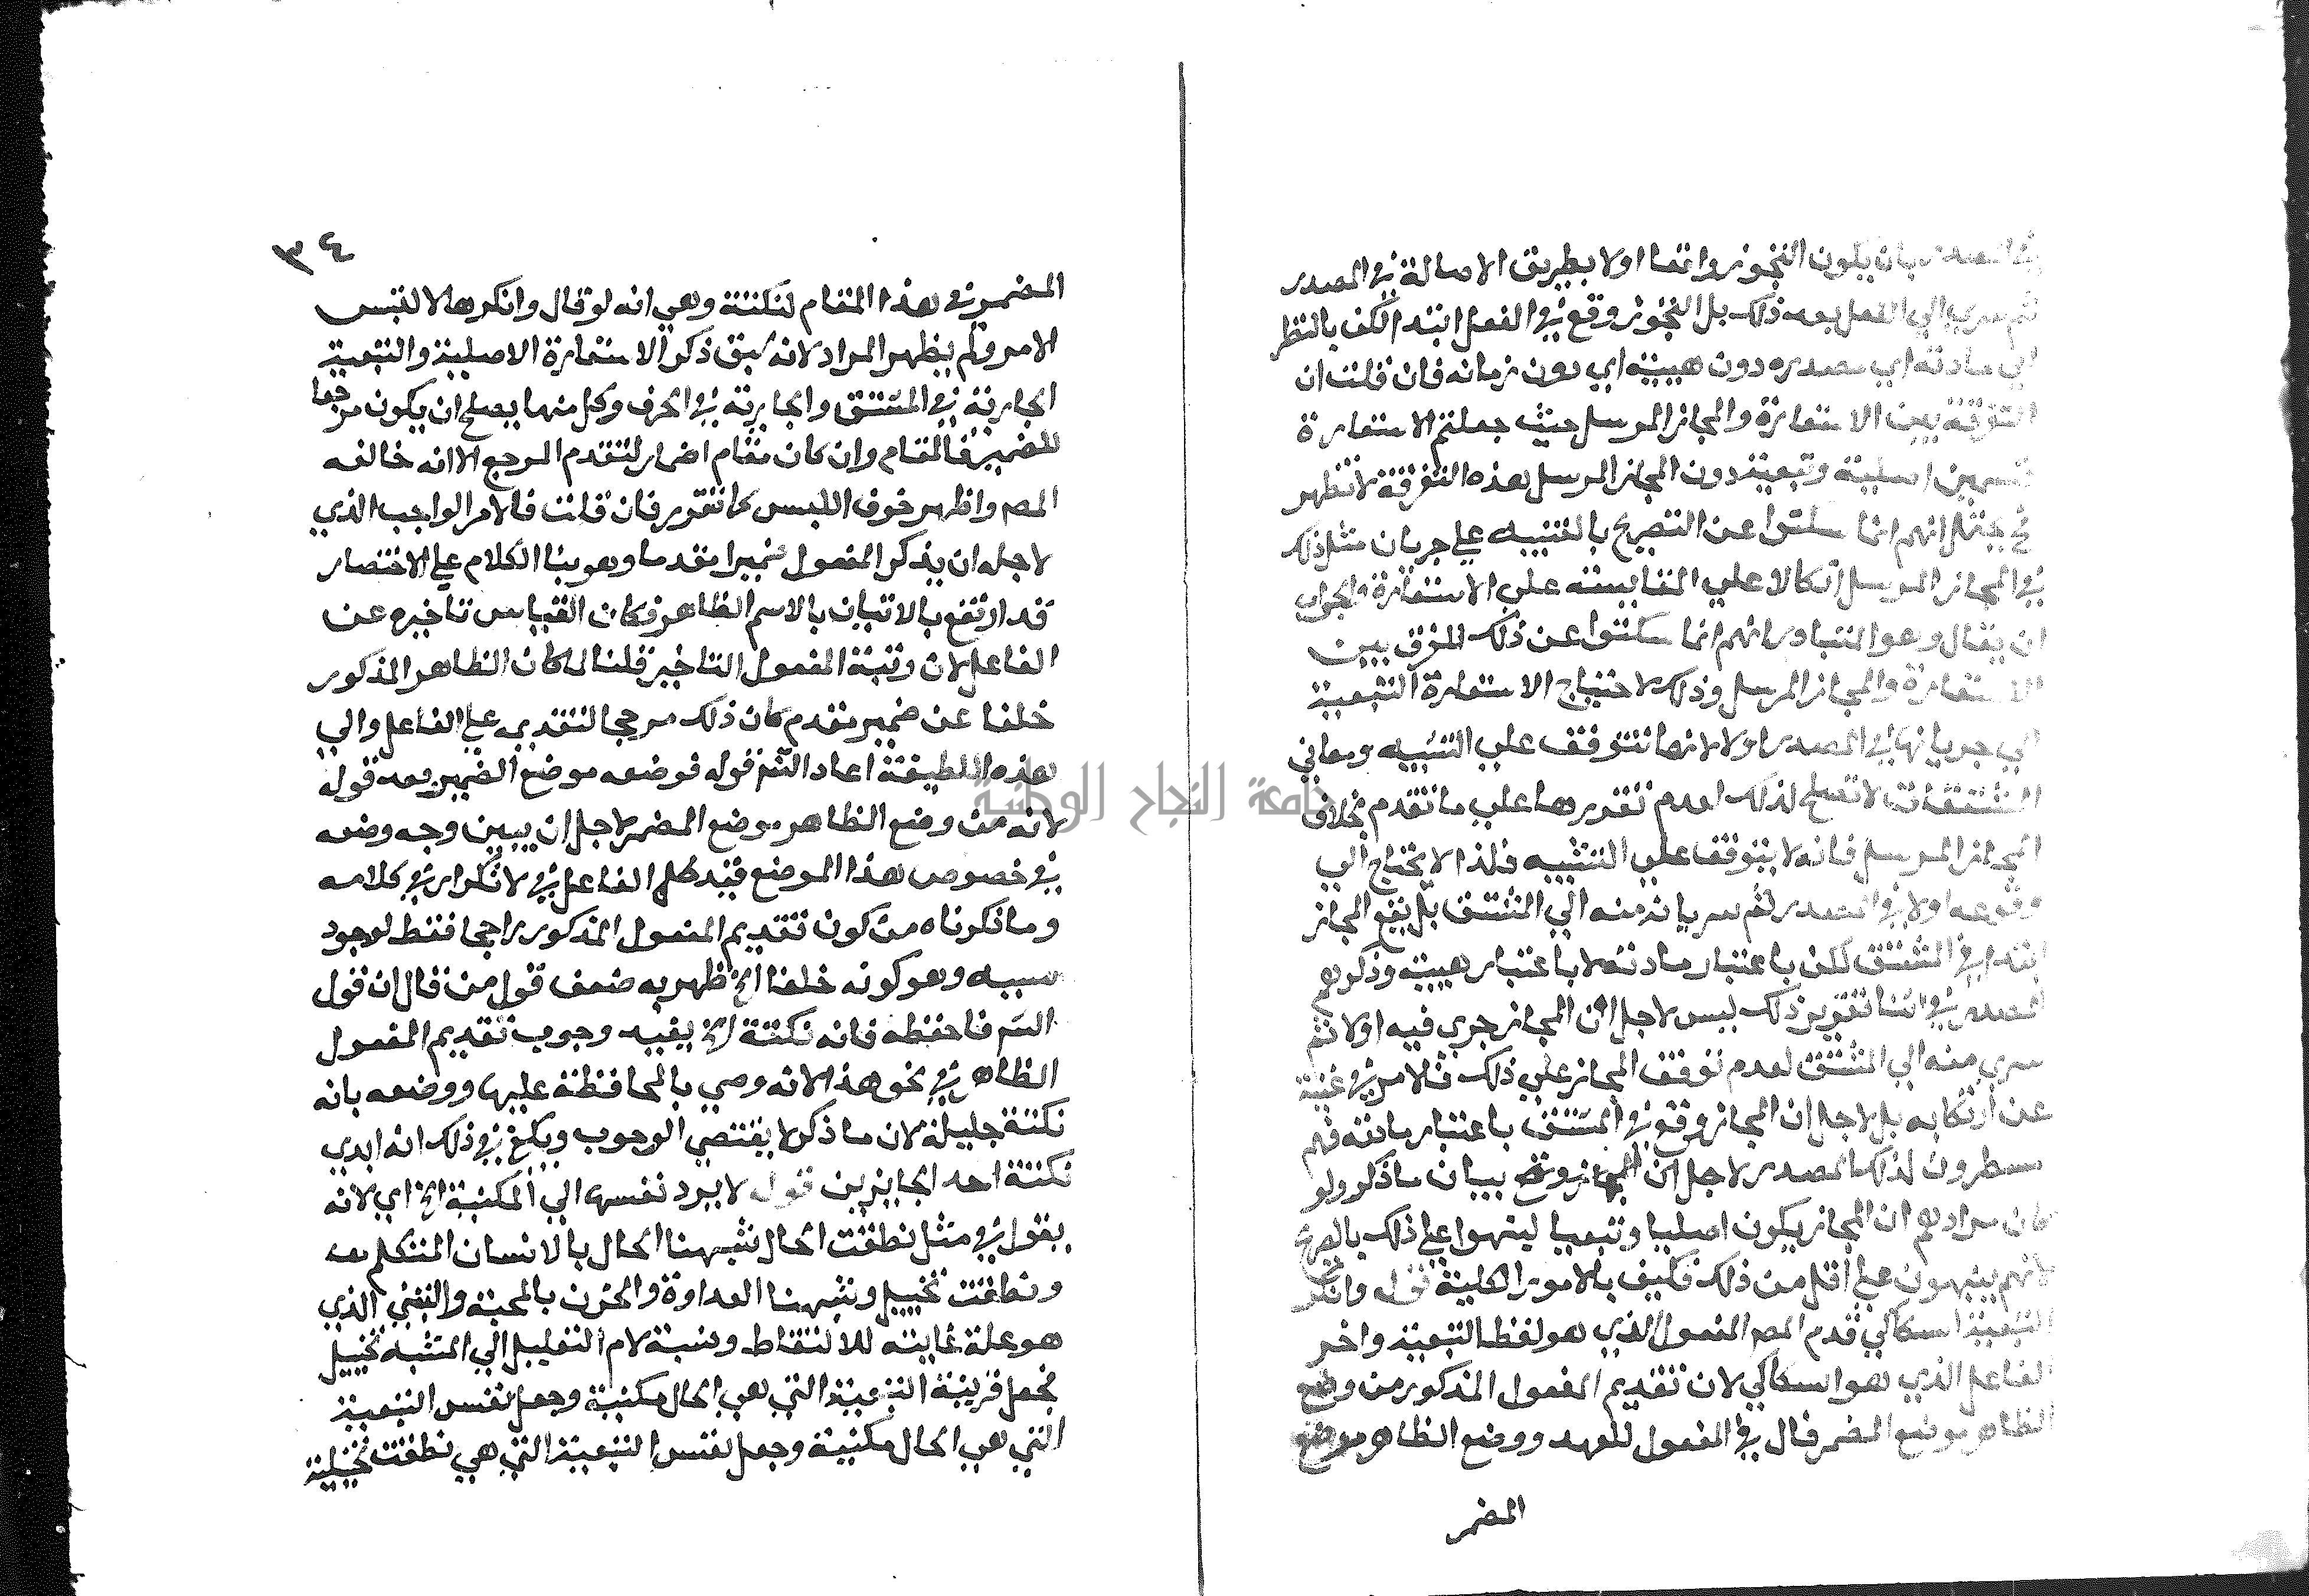 بان يكون التجوز واقعا اولا بطريق الاصالة في المصدر
ثم سري الي الفعل بعد ذلك بل التجوز وقع في الفعل ابتدا لكن بالنظر
الي مادته اي مصدره دون هيئته اي دون زمانه فان قلت ان
التفرقة بين الاستعارة والمجاز المرسل حيث جعلتم الاستعارة
قسمين اصلية وتبعية دون المجاز المرسل هذه التفرقة لا تظهر
انهم انما سكتوا عن التصريح بالتنبيه علي جريان مثل ذلك
في المجاز المرسل اتكالا علي المقايسة علي الاستعارة والجواب
ان يقال وهو المتبادر انهم انما سكتوا عن ذلك للفرق بين
الاستعارة والمجاز المرسل وذلك لاحتياج الاستعارة التبعية
الي جريانها في المصدر اولا لانها تتوقف علي التشبيه ومعاني
المشتقات لا تصلح لذلك لعدم تقررها علي ما تقدم بخلاف
المجاز المرسل فانه لا يتوقف علي التشبيه فلذا لا يحتاج الي
وقوعه اولا في المصدر ثم سريانه منه الي المشتق بل يقع المجاز
ابتدا في المشتق لكن باعتبار مادته لا باعتبار هيئته وذكرهم
المصدر في اثنا تقرير ذلك ليس لاجل ان المجاز جري فيه اولا ثم
سري منه الي المشتق لعدم توقف المجاز علي ذلك فلامر في غنية
عن ارتكابه بل لاجل ان المجاز وقع في المشتق باعتبار مادته فهم
يسطرون لذلك المصدر لاجل ان المجاز وقع ببيان ما ذكر ولو
كان مرادهم ان المجاز يكون اصليا وتبعيا لنبهوا علي ذلك بالصريح
لانهم ينبهون علي اقل من ذلك فكيف بالامور الكلية قوله وانكر
التبعية السكاكي قدم المص المفعول الذي هو لفظ التبعية واخر
الفاعل الذي هو السكاكي لان تقديم المفعول المذكور من وضع
الظاهر موضع المضمر فال في المفعول للعهد ووضع الظاهر موضع
المضمر
٣٤
المضمر في هذا المقام لنكتة وهي انه لو قال وانكرها لالتبس
الامر ولم يظهر المراد لانه سبق ذكر الاستعارة الاصلية والتبعية
الجارية في المشتق والجارية في الحرف وكل منها يصلح ان يكون مرجعا
للضمير فالمقام وان كان مقام اضمار لتقدم المرجع الا انه خالفه
المص واظهر خوف اللبس كما تقرر فان قلت فالامر الواجب الذي
لاجله ان يذكر المفعول ضميرا متقدما وهو بنا الكلام علي الاختصار
قد ارتفع بالاتيان بالاسم الظاهر فكان القياس تاخيره عن
الفاعل لان رتبة المفعول التاخير قلنا لما كان الظاهر المذكور
خلفا عن ضمير متقدم كان ذلك مرجحا لتقديمه علي الفاعل والي
هذه اللطيفة اعاد الش قوله فوضعه موضع الضمير بعد قوله
لانه من وضع الظاهر موضع المضمر لاجل ان يبين وجه وضعه
في خصوص هذا الموضع قبل الفاعل فلا تكرار في كلامه
وما ذكرناه من كون تقديم المفعول المذكور راجحا فقط لوجود
سببه وهو كونه خلفا الخ ظهر به ضعف قول من قال ان قول
الش فاحفظه فانه نكتة الخ يفيد وجوب تقديم المفعول
الظاهر في نحو هذا لانه وصي بالمحافظة عليها ووضعه بانه
نكتة جليلة لان ما ذكر لا يقتضي الوجوب ويكفي في ذلك انه ابدي
نكتة احد الجايزين قوله لا يرد نفسها الي المكنية الخ اي لانه
يقول في مثل نطقت الحال شبهنا الحال بالانسان المتكلم
ونطقت تخييل وشبهنا العداوة والحزن بالمحبة والتبني الذي
هو علة غايته للالتقاط ونسبة لام التعليل الي المشبه تخييل
فجعل قرينة التبعية التي هي الحال مكنية وجعل نفس التبعية
التي هي الحال مكنية وجعل نفس التبعية التي هي نطقت تخييلية
جامعة النجاح الوطنية